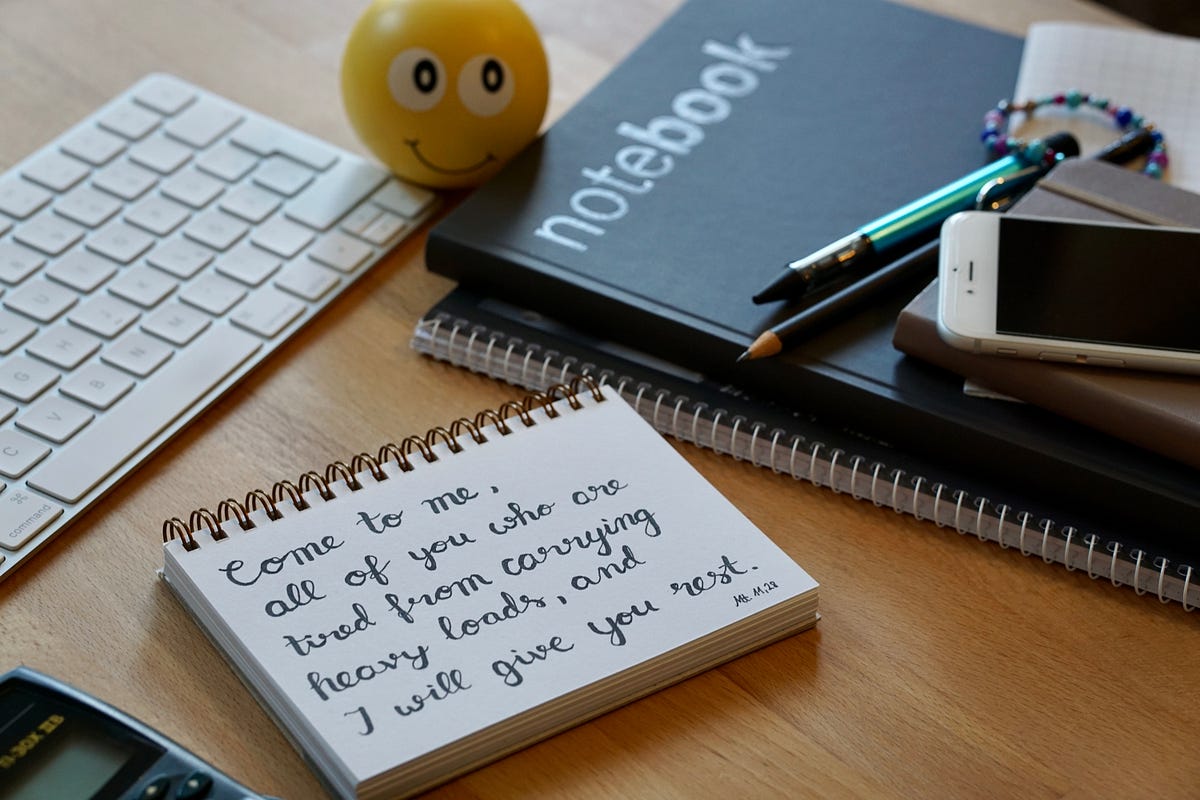 notebook
Come to me,
all of you who are
tired from carrying
heavy loads, and
I will give you rest.
Mt. 11,28
command
⌘
C
V
B
N
M
G
H